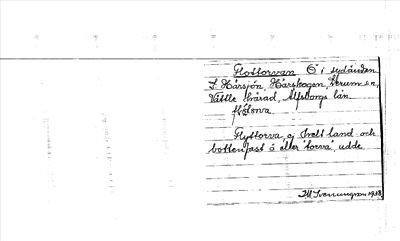 Flottorvan Ö i sydänden
S. Hårsjön, Hårskogen, Skrum sn,
Vättle härad, Älfsborgs län.
Flyttorva, ej helt land och
bottenfast ö eller "torva" udde.